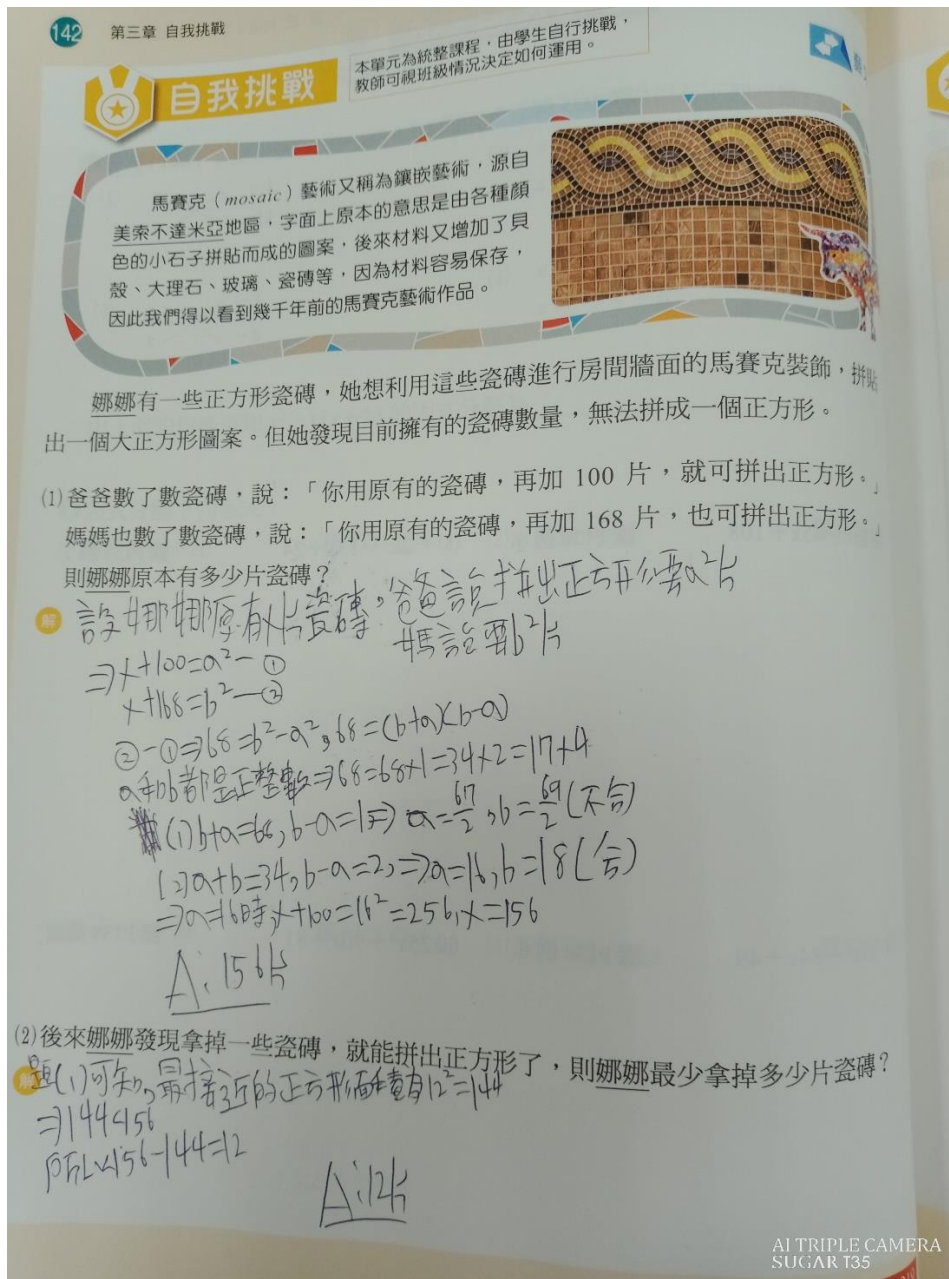 142 第三章 自我挑戰
自我挑戰
本單元為統整課程，由學生自行挑戰，
教師可視班級情況決定如何運用。
馬賽克（mosaic）藝術又稱為鑲嵌藝術，源自
美索不達米亞地區，字面上原本的意思是由各種顏
色的小石子拼貼而成的圖案，後來材料又增加了貝
殼、大理石、玻璃、瓷磚等，因為材料容易保存，
因此我們得以看到幾千年前的馬賽克藝術作品。
娜娜有一些正方形瓷磚，她想利用這些瓷磚進行房間牆面的馬賽克裝飾，拼貼
出一個大正方形圖案。但她發現目前擁有的瓷磚數量，無法拼成一個正方形。
(1) 爸爸數了數瓷磚，說：「你用原有的瓷磚，再加 100 片，就可拼出正方形。」
媽媽也數了數瓷磚，說：「你用原有的瓷磚，再加 168 片，也可拼出正方形。」
則娜娜原本有多少片瓷磚？
解 設娜娜原有x片瓷磚，爸爸說拼出正方形需a²片
媽說要b²片
⇒x+100=a²—①
x+168=b²—②
②-①⇒68=b²-a²,68=(b+a)(b-a)
a和b都是正整數⇒68=68×1=34×2=17×4
(1)b+a=68,b-a=1⇒a=67/2,b=69/2(不合)
(2)a+b=34,b-a=2,⇒a=16,b=18(合)
⇒a=16時,x+100=16²=256,x=156
A:156片
(2) 後來娜娜發現拿掉一些瓷磚，就能拼出正方形了，則娜娜最少拿掉多少片瓷磚？
題(1)可知,最接近的正方形面積為12²=144
⇒144<156
所以156-144=12
A:12片
AI TRIPLE CAMERA
SUGAR T35